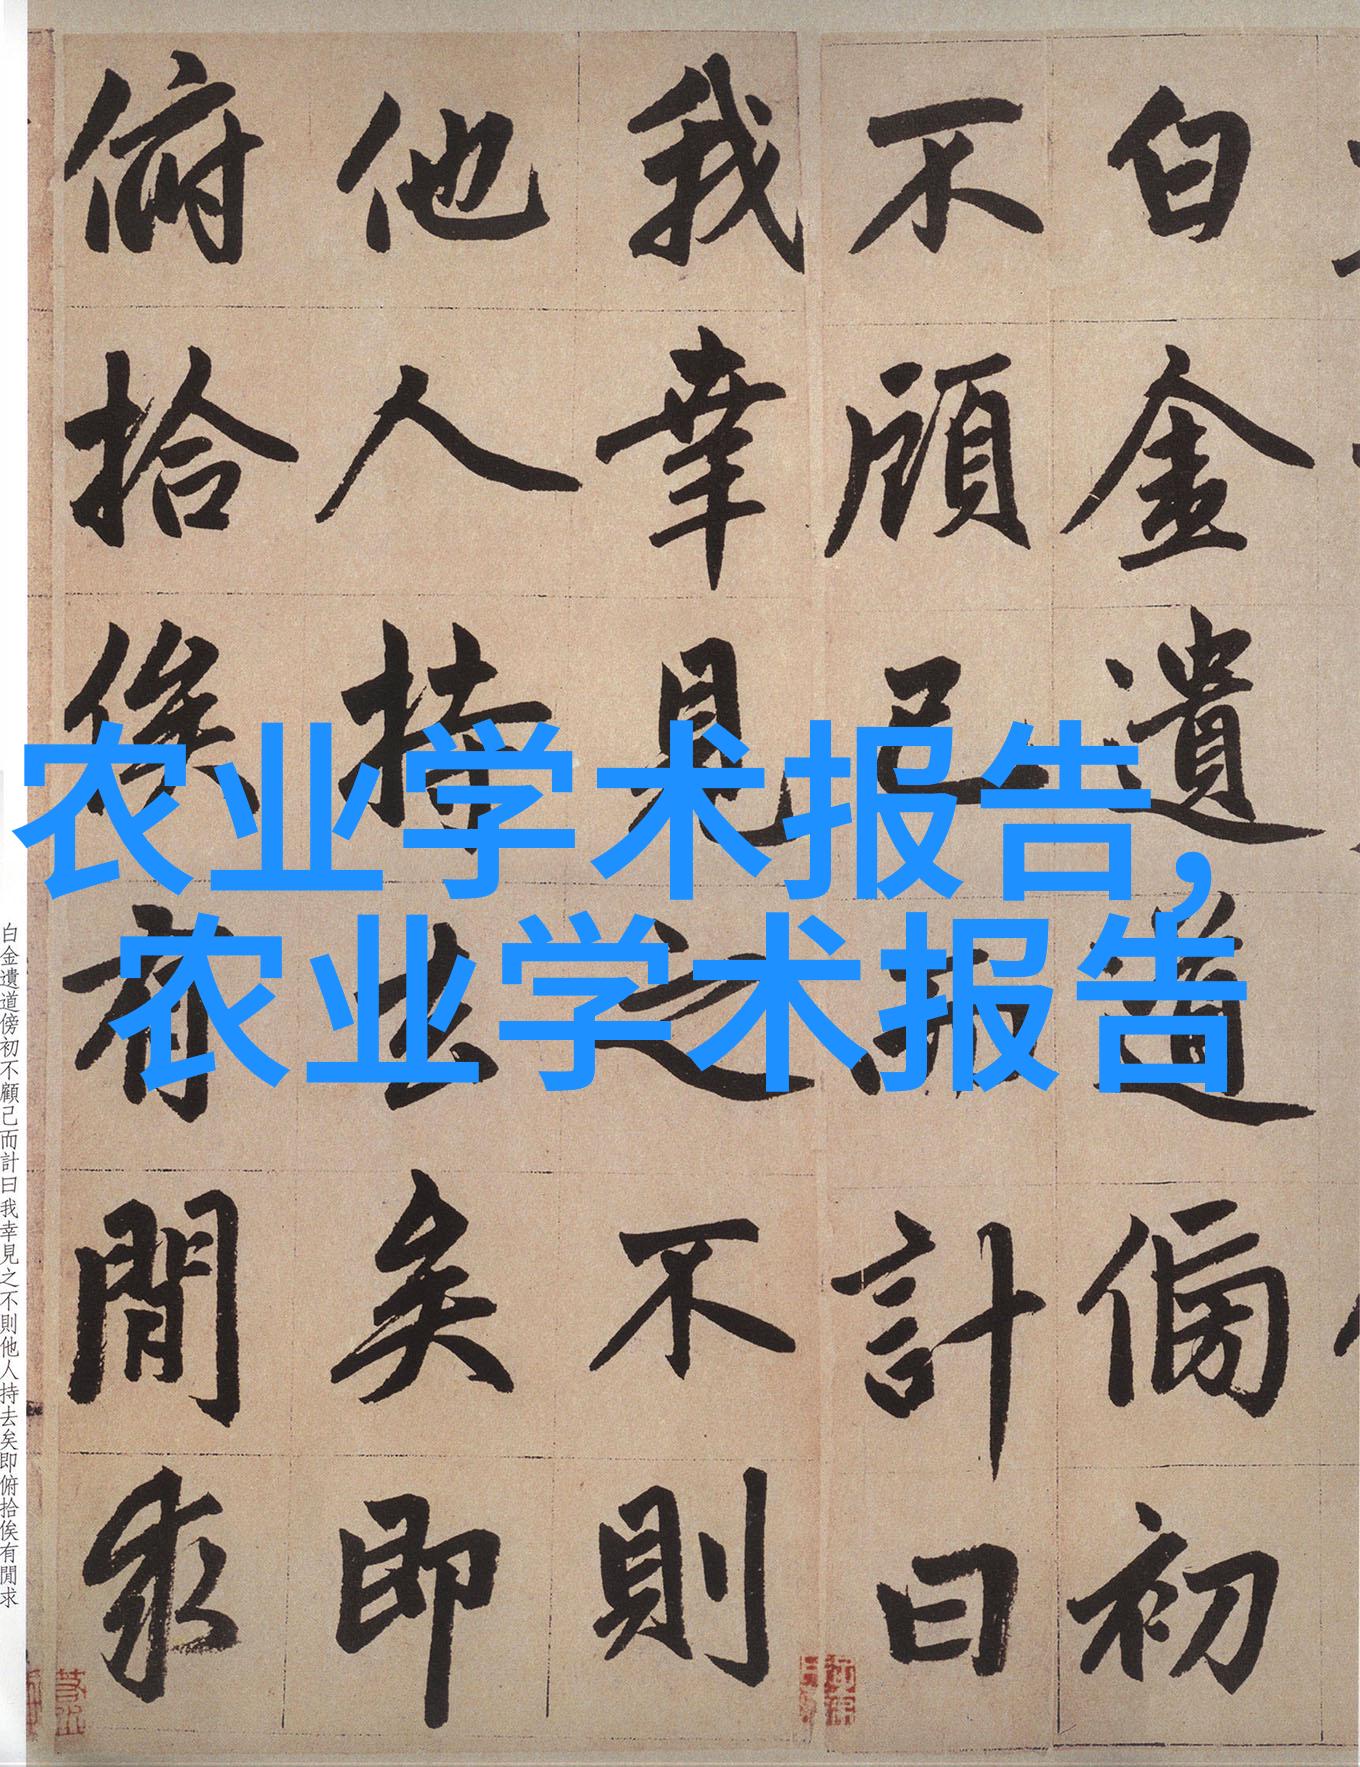 白金遺道傍初
不顧己而計曰
我幸見之不則
他人持去矣即
俯拾俟有閒求
农业学术报告,
农业学术报告
白金遺道傍初不顧己而計曰我幸見之不則他人持去矣即俯拾俟有閒求